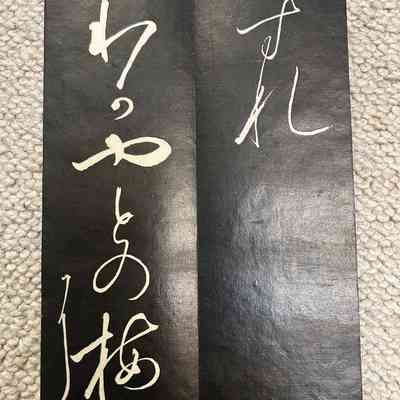 すれ
わかやとの梅